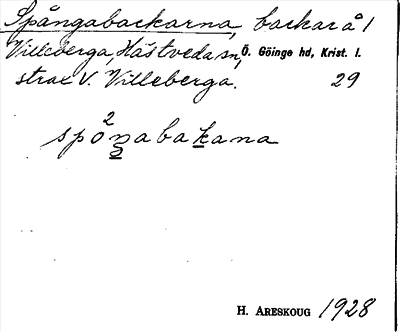 Spångabackarna, backar å 1
Villeberga, Hästveda sn, Ö. Göinge hd, Krist. l.
strax V. Villeberga. 29
2
spoṉabaḵana
H. ARESKOUG 1928